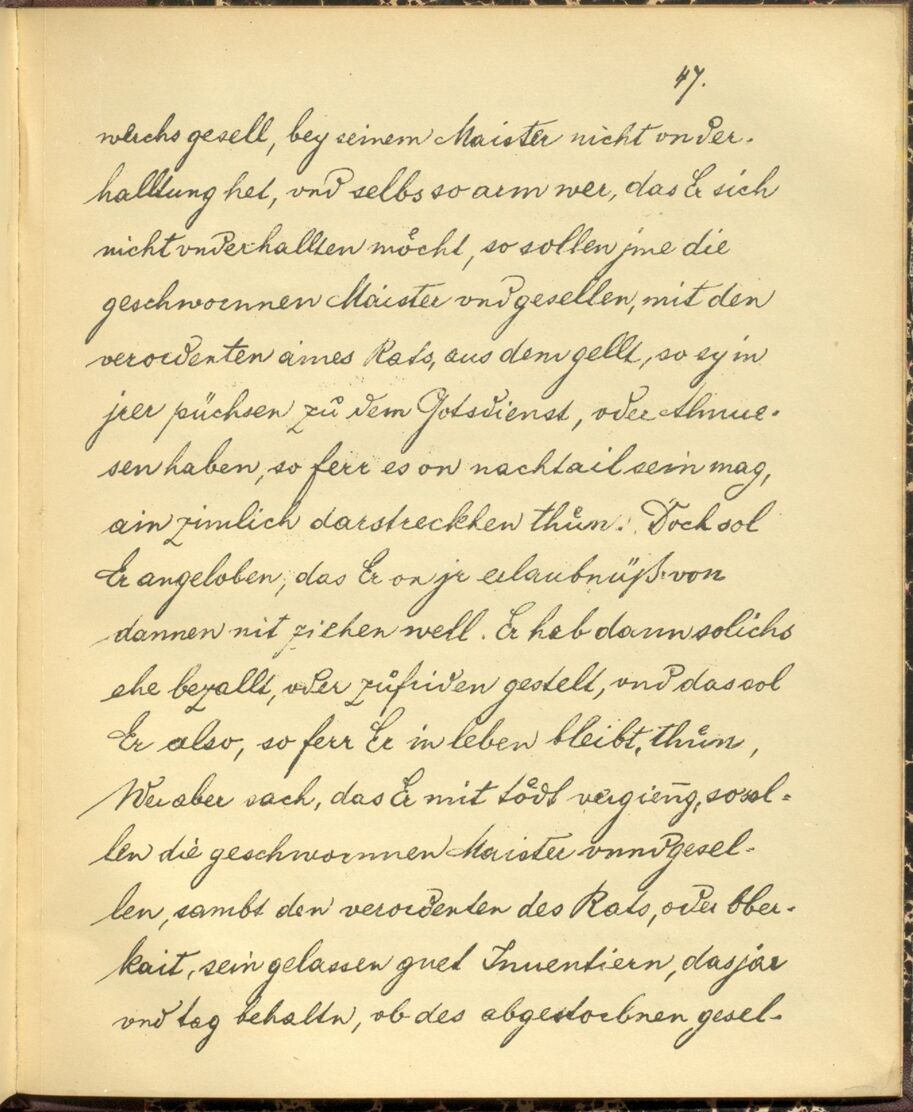 47.
werchs gesell, bey seinem Maister nicht vnder-
halltung het, vnd selbs so arm wer, das Er sich
nicht vnderhallten möcht, so sollen jme die
geschwornnen Maister vnd gesellen, mit den
verordenten aines Rats, aus dem gellt, so sy in
jrer püchsen zů dem Gotsdienst, oder Almue-
sen haben, so ferr es on nachtail sein mag,
ain zimlich darstreckhen thůn. Doch sol
Er angeloben, das Er on jr erlaubnüß von
dannen nit ziehen well. Er hab dann solichs
ehe bezallt, oder zůfriden gestelt, vnd das sol
Er also, so ferr Er in leben bleibt, thůn,
Wer aber sach, das Er mit tödt vergieng, so sol-
len die geschwornnen Maister vnnd gesel-
len, sambt den verordenten des Rats, oder Ober-
kait, sein gelassen guet Inuentiern, das jår
vnd tag behaltn, ob des abgestorbnen gesel-